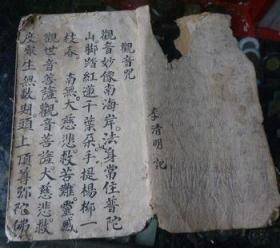 觀音咒
觀音妙像南海岸。法身常住普陀
山脚踏紅蓮千葉朶。手提楊柳一
枝春。南無大慈悲。救苦難。靈感
觀世音菩薩觀音菩薩大慈悲救
度眾生無數
頭上頂尊弥陀佛
李清明記